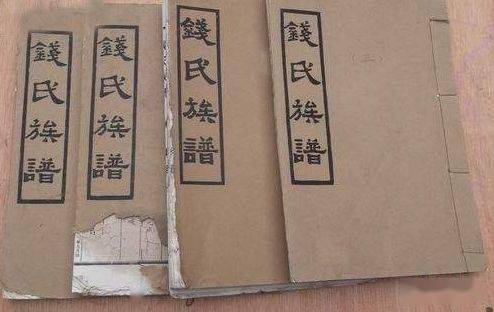 錢氏族譜
錢氏族譜
錢氏族譜
錢氏族譜
(三)